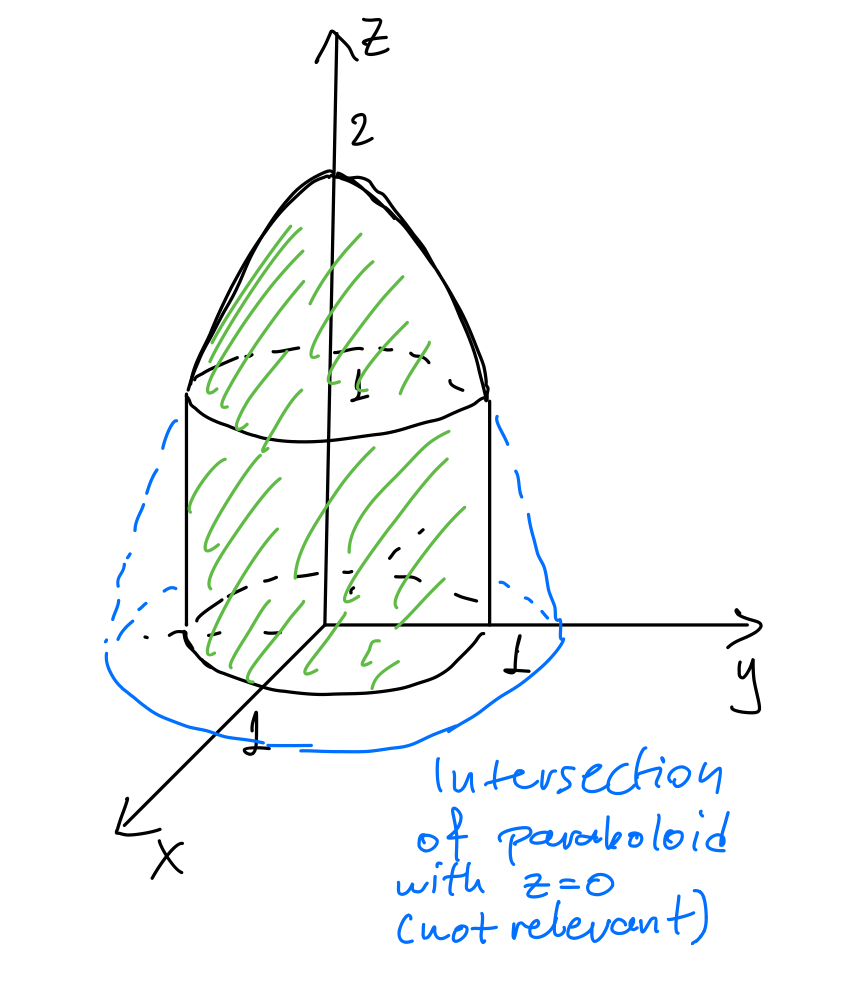 z
2
1
1
y
1
x
Intersection
of paraboloid
with z=0
(not relevant)